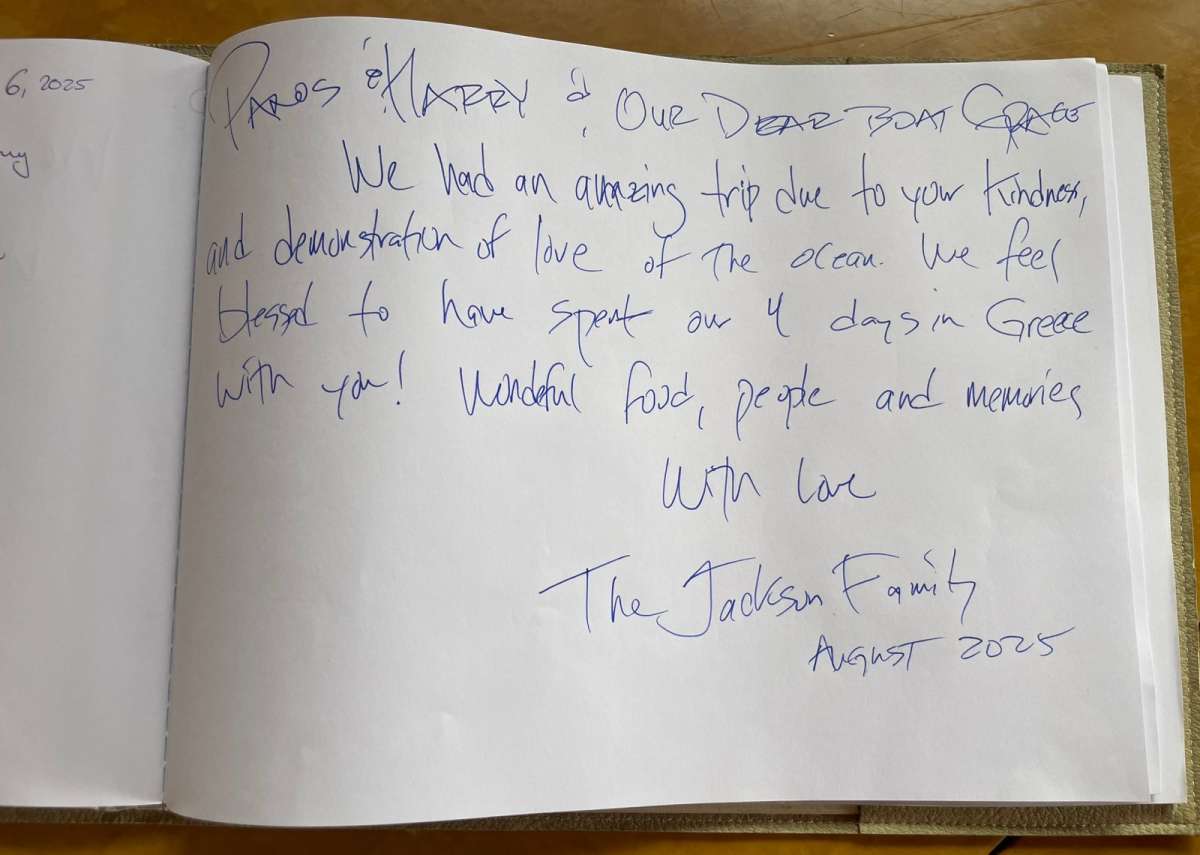 6, 2025
PAROS & HARRY & OUR DEAR BOAT GRACE
We had an amazing trip due to your kindness,
and demonstration of love of the ocean. We feel
blessed to have spent our 4 days in Greece
with you! Wondeful food, people and memories
With love
The Jackson Family
AUGUST 2025